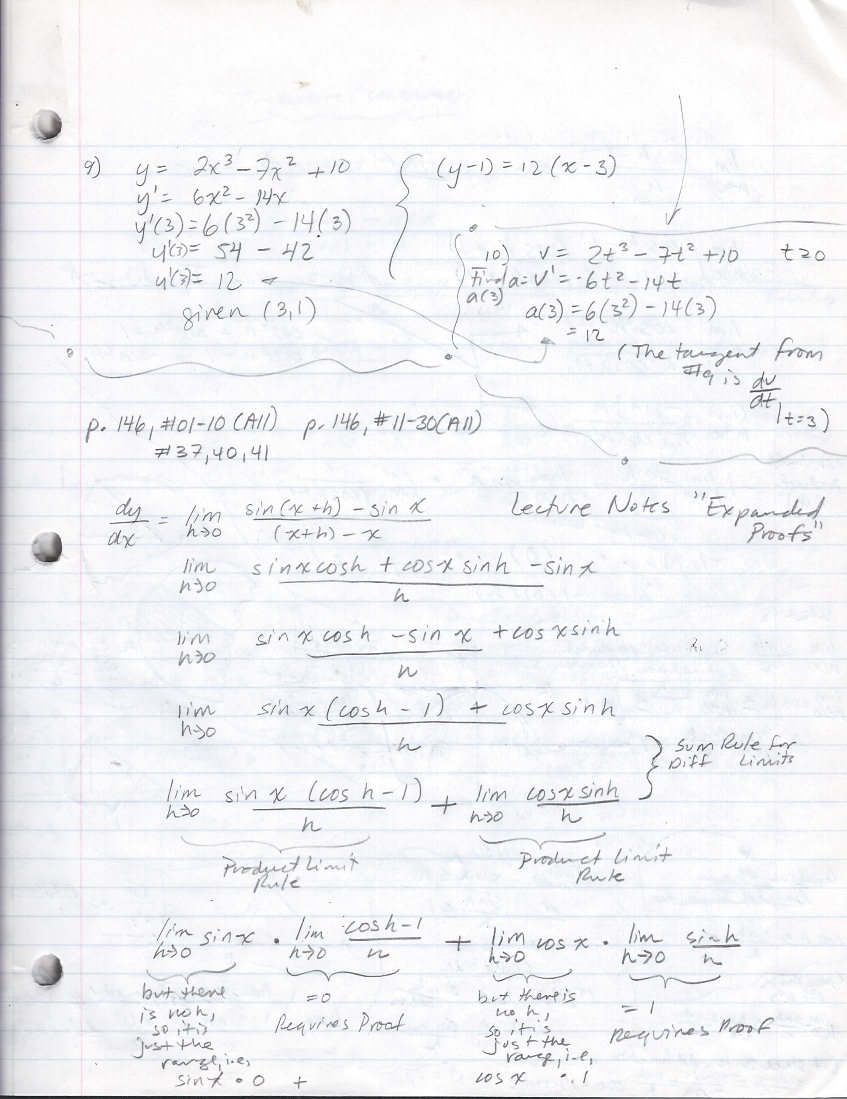 9) y = 2x³ - 7x² + 10
y' = 6x² - 14x
y'(3) = 6(3²) - 14(3)
y'(3) = 54 - 42
y'(3) = 12
given (3,1)
(y-1) = 12(x-3)
10) v = 2t³ - 7t² + 10 t≥0
find a(3) a = v' = 6t² - 14t
a(3) = 6(3²) - 14(3)
= 12
(The tangent from
#9 is dv/dt |t=3)
p. 146, #01-10 (All) p. 146, #11-30 (All)
#37, 40, 41
Lecture Notes "Expanded
Proofs"
dy/dx = lim h→0 sin(x+h) - sin x / (x+h) - x
lim h→0 sinxcosh + cosx sinh - sinx / h
lim h→0 sin x cosh - sin x + cosxsinh / h
lim h→0 sin x (cosh - 1) + cosx sinh / h
lim h→0 sin x (cos h - 1) / h + lim h→0 cosx sinh / h } Sum Rule for
Diff Limits
Product Limit
Rule
Product Limit
Rule
lim h→0 sin x · lim h→0 cosh-1 / h + lim h→0 cosx · lim h→0 sinh / h
but there
is no h,
so it is
just the
range, i.e,
sinx · 0 +
= 0
Requires Proof
but there is
no h,
so it is
just the
range, i.e,
cos x · 1
= 1
Requires Proof